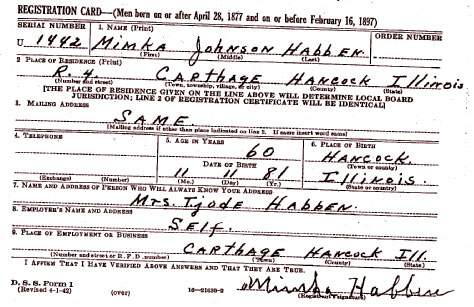 REGISTRATION CARD—(Men born on or after April 28, 1877 and on or before February 16, 1897)
SERIAL NUMBER 1. NAME (Print) ORDER NUMBER
U 1442 Mimka Johnson Habben
(First) (Middle) (Last)
2 PLACE OF RESIDENCE (Print)
R. 4. CARTHAGE HANCOCK Illinois
(Number and street) (Town, township, village, or city) (County) (State)
[THE PLACE OF RESIDENCE GIVEN ON THE LINE ABOVE WILL DETERMINE LOCAL BOARD
JURISDICTION; LINE 2 OF REGISTRATION CERTIFICATE WILL BE IDENTICAL]
3. MAILING ADDRESS
SAME
(Mailing address if other than place indicated on line 2. If same insert word same)
4. TELEPHONE 5. AGE IN YEARS 6. PLACE OF BIRTH
60 HANCOCK
DATE OF BIRTH (Town or county)
11 11 81 ILLINOIS.
(Exchange) (Number) (Mo.) (Day) (Yr.) (State or country)
7. NAME AND ADDRESS OF PERSON WHO WILL ALWAYS KNOW YOUR ADDRESS
Mrs. Tjode HABBEN.
8. EMPLOYER'S NAME AND ADDRESS
Self.
9. PLACE OF EMPLOYMENT OR BUSINESS
CARTHAGE HANCOCK Ill.
(Number and street or R. F. D. number) (Town) (County) (State)
I AFFIRM THAT I HAVE VERIFIED ABOVE ANSWERS AND THAT THEY ARE TRUE.
D. S. S. Form 1
(Revised 4-1-42) (over) 16—21630-2 Mimka Habben
(Registrant's signature)